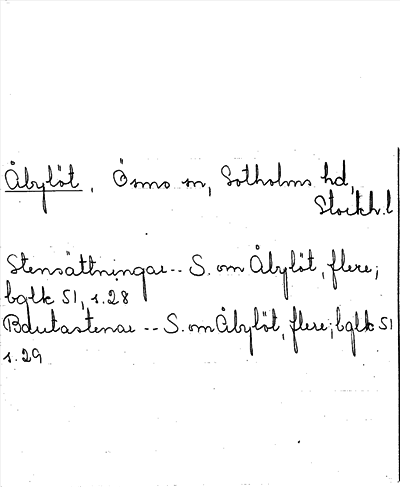 Åbylöt, Ösmo sn, Sotholms hd,
Stockh.l
Stensättningar -- S. om Åbylöt, flere;
bglk 51, s.28
Bautastenar -- S. om Åbylöt, flere; bglk 51
s.29